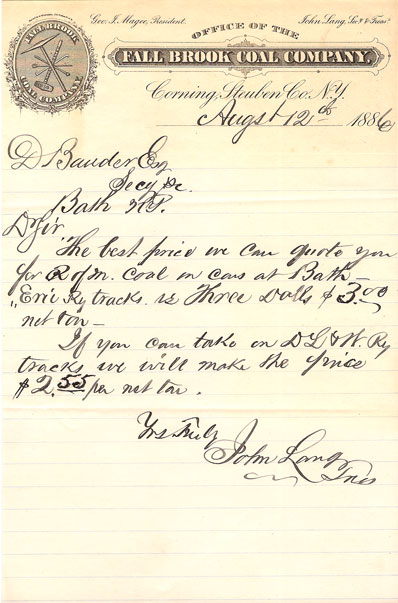 Geo. J. Magee, President.
John Lang, Sec'y & Treas'r
OFFICE OF THE
FALL BROOK COAL COMPANY.
FALL BROOK
COAL COMPANY.
Corning, Steuben Co. N.Y.
Augst 12th 1886
D Bauder Esq
Secy &c
Bath N.Y.
D Sir
The best price we can quote you
for R of m. coal on cars at Bath -
"Erie Ry tracks is Three Dolls $3.00
net ton -
If you can take on D L & W. Ry
tracks we will make the price
$2.55 per net ton.
Yrs Truly
John Lang
Tres